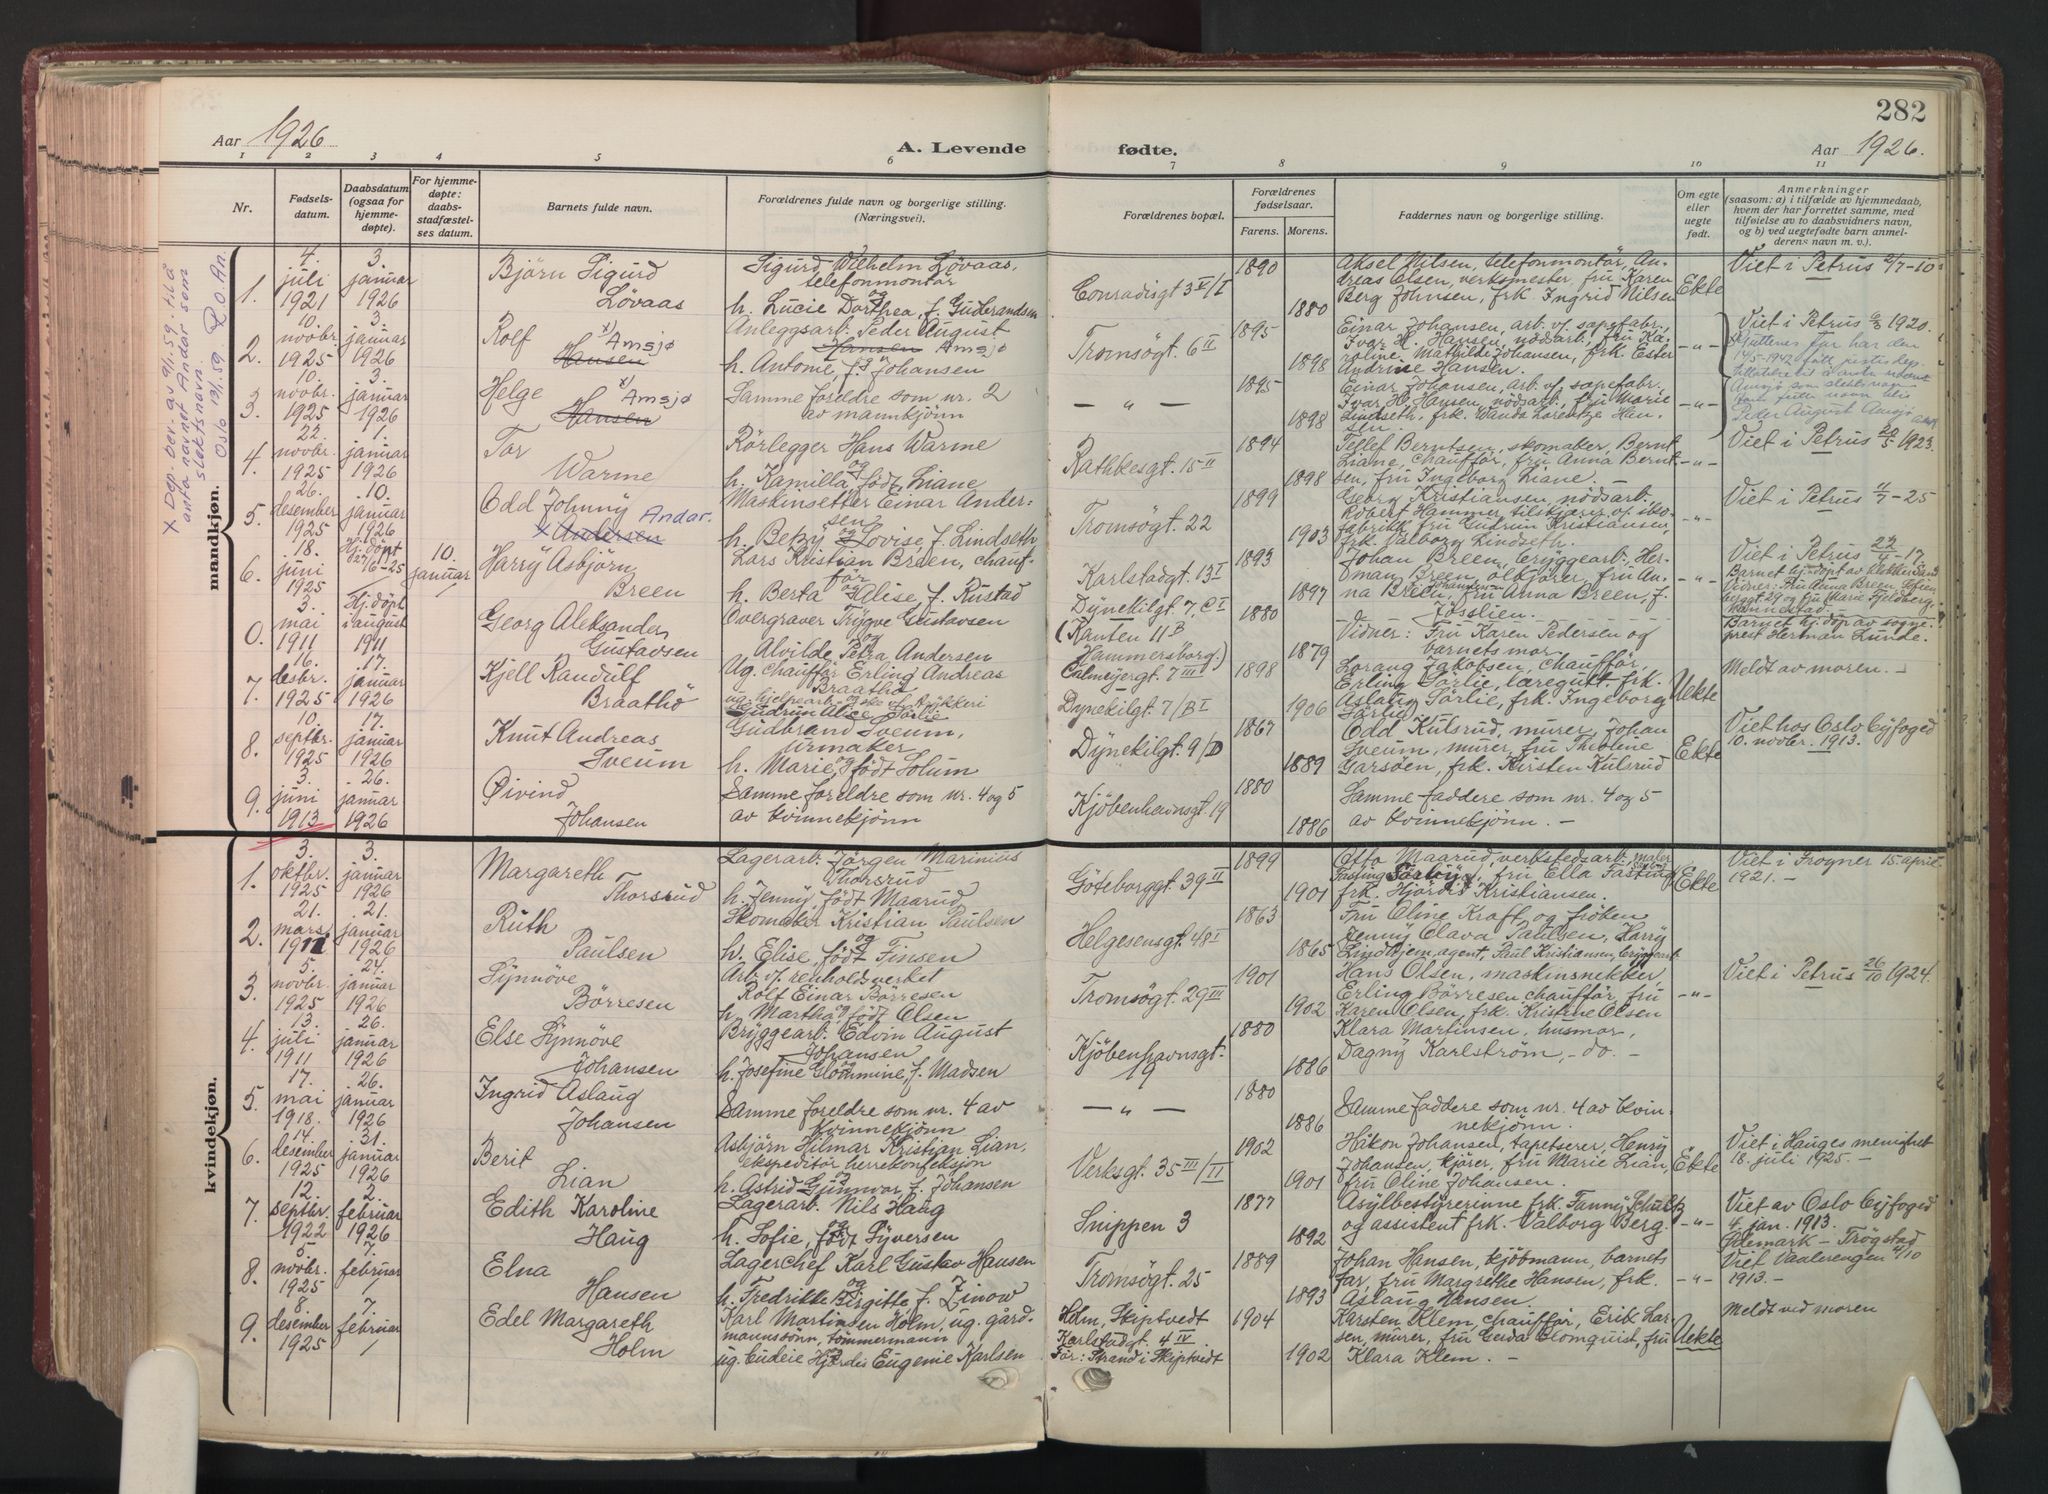 282
Aar 1926
A. Levende
fødte.
Aar 1926.
1 2 3 4 5 6 7 8 9 10 11
Nr.
Fødsels-
datum.
Daabsdatum
(ogsaa for
hjemme-
døpte).
For hjemme-
døpte:
daabs-
stadfæstel-
ses datum.
Barnets fulde navn.
Forældrenes fulde navn og borgerlige stilling.
(Næringsvei).
Forældrenes bopæl.
Forældrenes
fødselsaar.
Farens. Morens.
Faddernes navn og borgerlige stilling.
Om egte
eller
uegte
født.
Anmerkninger
(saasom: a) i tilfælde av hjemmedaab,
hvem der har forrettet samme, med
tilføielse av to daabsvidners navn,
og b) ved uegtefødte barn anmel-
derens navn m. v.).
x Dep. bev. av 9/1.59. til å
anta navnet Andar som
slektsnavn.
Oslo 13/1.59.
mandkjøn.
1.
4.
juli
1921
3.
januar
1926
Björn Sigurd
Lövaas
Sigurd Wilhelm Lövaas,
telefonmontör
og
h. Lucie Dorthea, f. Gudbrandsen
Conradisgt 3 V/I
1890
1880
Aksel Nilsen, telefonmontör, An-
dreas Olsen, verksmester, fru Karen
Berg Johnsen, frk. Ingrid Nilsen
Ekte
Viet i Petrus 2/7-10
2.
10.
novbr.
1925
3.
januar
1926
Rolf
x) Amsjø
Hansen
Anleggsarb. Peder August
Hansen Amsjø
h. Antonie, f. Johansen
Tromsögt 6 II
1895
1898
Einar Johansen, arb. v. sæpefabr.,
Ivar H. Hansen, nödsarb., fru Ka-
roline Mathilde Johansen, frk. Ester
Andrine Hansen.
-"-
Viet i Petrus 6/3 1920.
Guttenes far har den
14/5-1942 fått justisdep.
tillatelse til å anta navnet
Amsjø som slektsnavn
Peder August Amsjø
3.
10.
novbr.
1925
3.
januar
1926
Helge
x) Amsjø
Hansen
Samme foreldre som nr. 2
av mannkjönn
- " -
1895
1898
Einar Johansen, arb. v. sæpefabr.
Ivar H. Hansen, nödsarb., fru Marie
Lindseth, frk. Wanda Lorentze Han-
sen.
-"-
4.
22.
novbr.
1925
1.
januar
1926
Tor
Warme
Rörlegger Hans Warme
og
h. Kamilla, födt Liane
Rathkesgt. 15 II
1894
1898
Tellef Berntsen, skomaker, Bernt
Liane, chaufför, fru Anna Bernt-
sen, fru Ingeborg Liane. -
-"-
Viet i Petrus 20/5 1923.
5.
26.
desember
1925
10.
januar
1926
Odd Johnny
Andar.
x Andersen
Maskinsetter Einar Ander-
sen
h. Betzy Lovise, f. Lindseth
Tromsögt. 22
1899
1903
Georg Kristiansen, nödsarb.
Robert Hammer, tilskjærer v. sko-
fabrikk, fru Gudrun Kristiansen,
frk. Valborg Lindseth.
-"-
Viet i Petrus 11/7-25
6.
18.
juni
1925
Hj. döpt
27/6-25
10.
januar
Harry Asbjörn
Breen
Lars Kristian Breen, chauf-
för
og
h. Berta Alise, f. Rustad
Karlstadgt. 13 I
1893
1897
Johan Breen, bryggearb., Her-
man Breen, ölkjörer, fru An-
na Breen, fru Anna Breen, f.
Jösslien.
-"-
Viet i Petrus 22/4-17
Vidner: Fru Anna Breen,
berggt 29 og fru Marie Fjeldberg,
0.
3.
mai
1911
Hj. döpt
i august
1911
Georg Aleksander
Gustavsen
Overgraver Trygve Gustavsen
og
Alvilde Petra Andersen
Dynekilgt. 7, C I
(Kanten 11 B
Hammersborg.)
1880
1879
Vidner: Fru Karen Pedersen og
barnets mor.
Barnet hj. döp av sogne-
prest Herman Lunde.
7.
16.
desbr.
1925
17.
januar
1926
Kjell Randulf
Braathö
Ug. chaufför Erling Andreas
Braathö
Gudrun Alice Sörlie
Calmeyergt. 7 III
Dynekilgt. 7/B I
1898
1906
Lorang Jakobsen, chaufför,
Erling Sörlie, læregutt, frk.
Aslaug Sörlie, frk. Ingeborg
Sörlie
Uekte
Meldt av moren. -
8.
10.
septbr.
1925
17.
januar
1926
Knut Andreas
Sveum
Gudbrand Sveum,
urmaker
og
h. Marie, födt Solum
Dynekilgt. 9/D
1867
1889
Odd Kulsrud, murer, Johan
Sveum, murer, fru Theolene
Garsöen, frk. Kirsten Kulsrud
Ekte
Viet hos Oslo byfoged
10. novbr. 1913.
9.
3.
juni
1913
26.
januar
1926
Øivind
Johansen
Samme foreldre som nr. 4 og 5
av kvinnekjönn
Kjöbenhavnsgt. 19
1880
1886
Samme faddere som nr. 4 og 5
av kvinnekjönn. -
kvindekjøn.
1.
3.
oktbr.
1925
3.
januar
1926
Margareth
Thorsrud
Lagerarb. Jörgen Marinius
Thorsrud
h. Jenny, födt Maarud
Göteborggt. 39 II
1899
1901
Otto Maarud, verkstedsarb., maler
Fasting, fru Ella Fasting,
frk. Hjördis Kristiansen.
Ekte
Viet i Frogner 15 april
1921. -
2.
21.
mars
1911
21.
januar
1926
Ruth
Paulsen
Skomaker Kristian Paulsen
og
h. Elise, födt Finsen
Helgesensgt. 48 I
1863
1865
Fru Oline Kraft, og fröken
Jenny Olava Paulsen, Harry
Lindkjem, agent, Paul Kristiansen, bryggearb.
3.
5.
novbr.
1925
24.
januar
1926
Synnöve
Börresen
Arb. v. renholdsverket
Rolf Einar Börresen
h. Martha, födt Olsen
Tromsögt. 29 III
1901
1902
Hans Olsen, maskinsnekker
Erling Börresen, chaufför, fru
Karen Olsen, frk. Kristine Olsen
-"-
Viet i Petrus 26/10 1924.
4.
13.
juli
1911
26.
januar
1926
Else Synnöve
Johansen
Bryggearb. Edvin August
Johansen
og
h. Josefine Glommine, f. Madsen
Kjöbenhavnsgt.
19
1880
1886
Klara Martinsen, husmor,
Dagny Karlström, -do. -
5.
17.
mai
1918.
26.
januar
1926
Ingrid Aslaug
Johansen
Samme foreldre som nr. 4 av
kvinnekjönn
- " -
1880
1886
Samme faddere som nr. 4 av kvin-
nekjönn.
6.
14.
desember
1925
31.
januar
1926
Berit
Lian
Asbjörn Hilmar Kristian Lian,
Ekspeditör herrekonfeksjon
og
h. Astrid Gunnvor, f. Johansen
Verksgt. 35 III/II
1902
1901
Håkon Johansen, tapetserer, Henry
Johansen, kjörer, fru Marie Lian,
fru Oline Johansen.
Ekte
Viet i Hauges menighet
18. juli 1925. -
7.
12.
septbr.
1922
2.
februar
1926
Edith Karoline
Haug
Lagerarb. Nils Haug
og
h. Sofie, födt Syversen
Snippen 3
1877
1892
Asylbestyrerinne frk. Fanny Schultz
og assistent frk. Valborg Berg
-"-
Viet av Oslo byfoged
4. jan. 1913.
- Trögstad
8.
5.
novbr.
1925
7.
februar
Elna
Hansen
Lagerchef Karl Gustav Hansen
og
h. Fredrikke Birgitte, f. Zinow
Tromsögt. 25
1889
1893
Johan Hansen, kjöbmann, barnets
far, fru Margrethe Hansen, frk.
Aslaug Hansen.
-"-
Viet Vaalerengen 4/10
1913. -
9.
8.
desember
1925
7.
februar
Edel Margareth
Holm
Karl Martinsen Holm, ug. gård-
mannssönn, tömmermann
og
ug. Hjördis Eugenie Karlsen
Holm, Skiptvedt
Karlstadgt. 4 IV
Før: Strand i Skiptvedt
1904
1902
Karsten Klem, chauffør, Erik Lar-
sen, murer, fru Gerda Blomquist, fru
Klara Klem. -
Uekte
Meldt ved moren